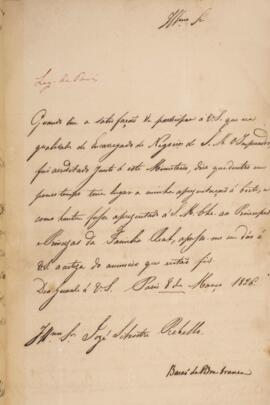 Illmo Sr
Leg. de Paris
Quando tive a satisfação de participar a V.S. que na
qualidade de Encarregado de Negocios de S. M. O Imperador,
foi acreditado junto á este Ministerio, disse que dentro em
pouco tempo teria lugar a minha apresentação á Corte, e
como hontem fosse apresentado á S. M. Chr. ao Principes
e Princezas da Familia Real, apresso-me em dar á
V.S. a noticia do
Deos Guarde á V. S. Paris 8 de Março 1826.
Illmo Sr. José Silvestre Rebello
Barão da Pedra branca